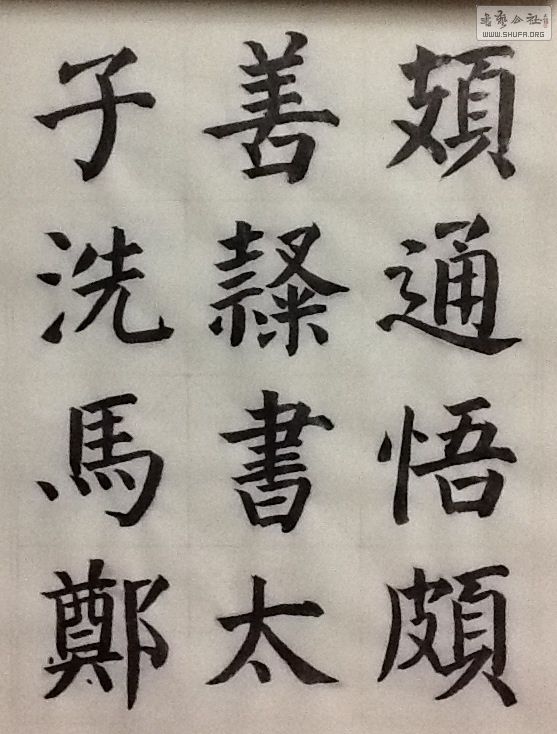 頍通悟頗
善隸書太
子洗馬鄭
书艺公社
WWW.SHUFA.ORG